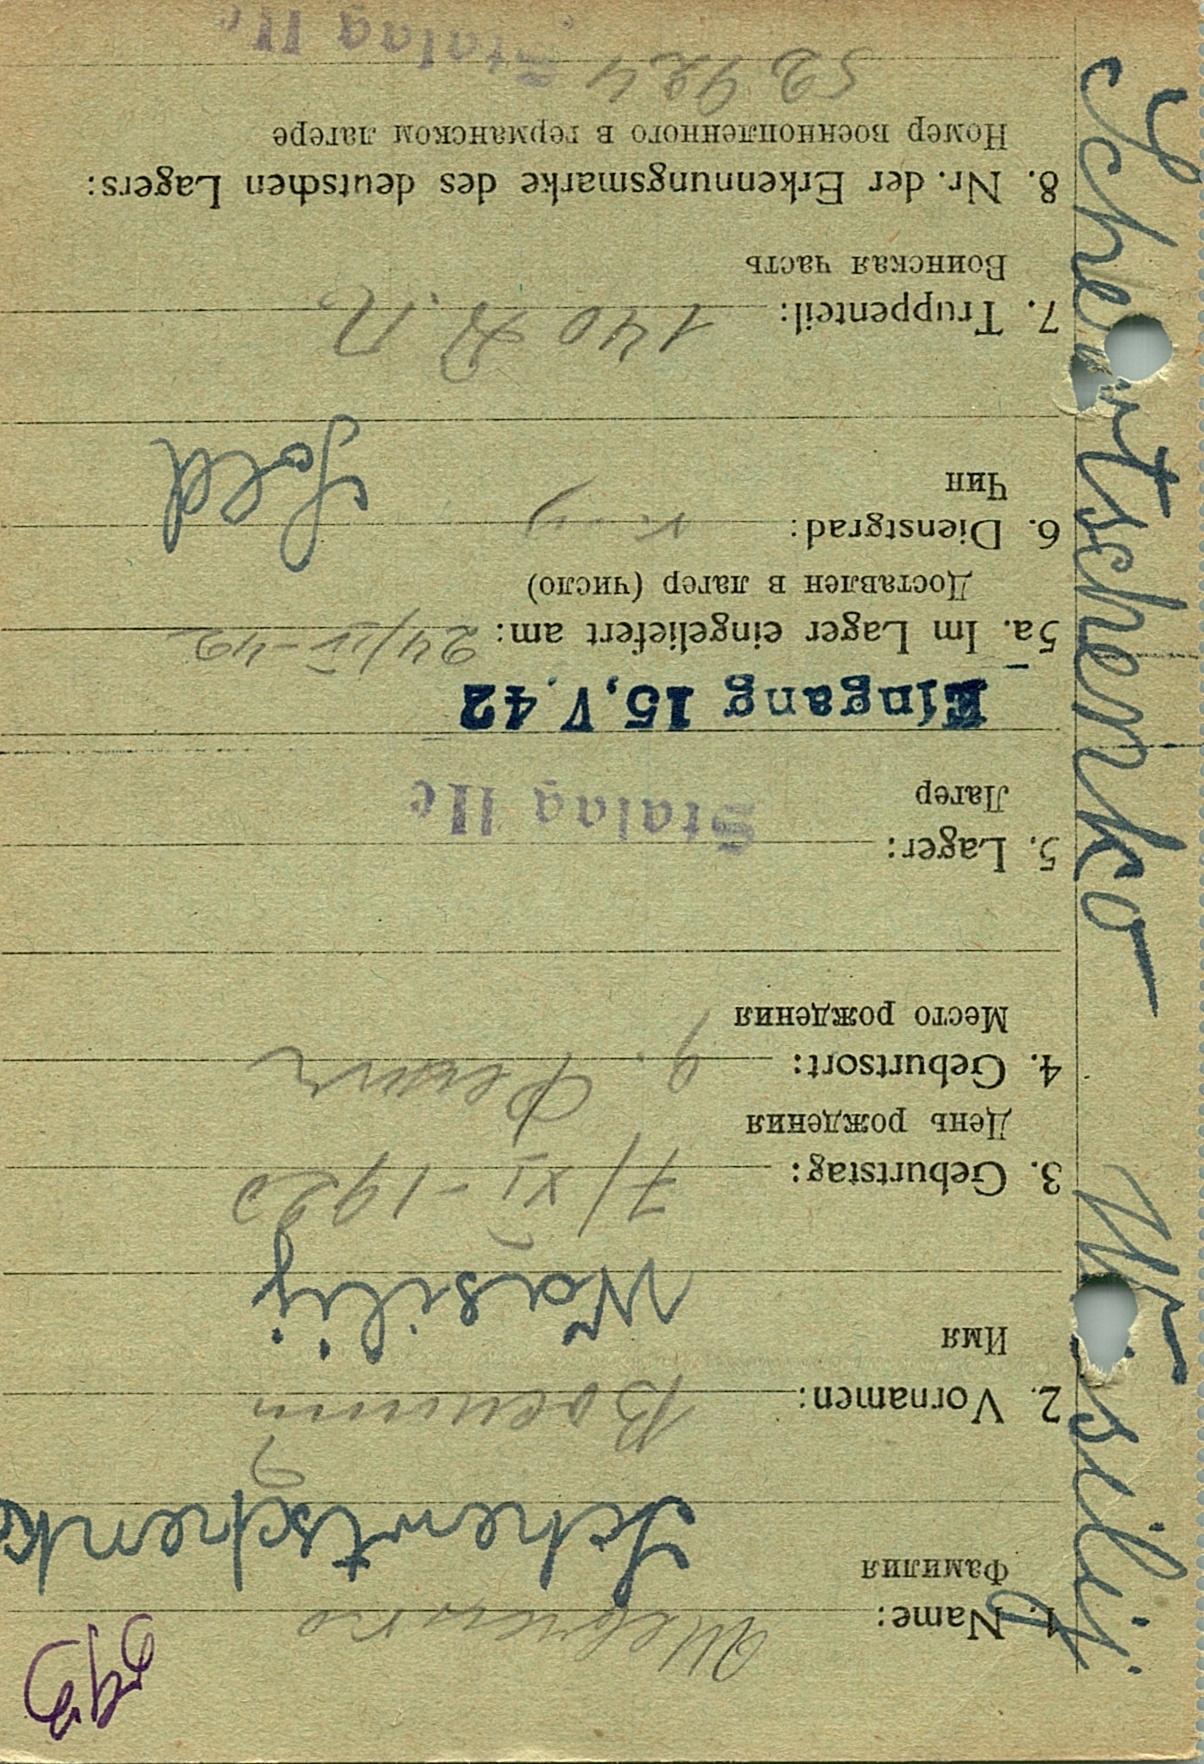 Schewtschenko Wasilij
1. Name: Шевченко
Фамилия
Schewtschenko
2. Vornamen: Василий
Имя
Wasilij
3. Geburtstag: 7/XI-1923
День рождения
4. Geburtsort: g.
Место рождения
5. Lager: Stalag IIc
Лагер
Eingang 15.V.42
5a. Im Lager eingeliefert am: 24/IV-42
Доставлен в лагер (число)
6. Dienstgrad:
Чин
Sold
7. Truppenteil: 140 Д.П.
Воинская часть
8. Nr. der Erkennungsmarke des deutschen Lagers:
Номер военнопленного в германском лагере
52924 Stalag IIc